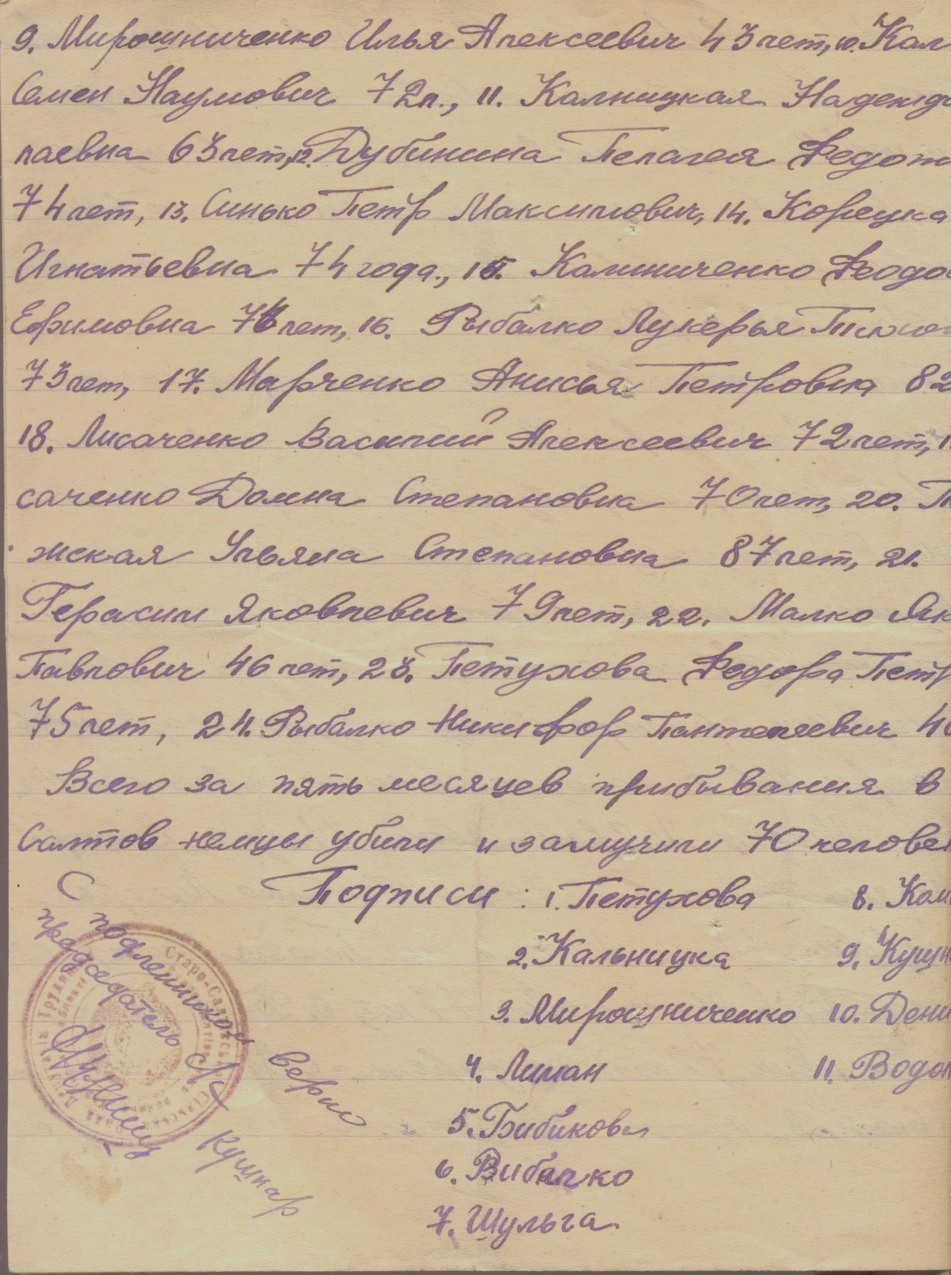 9. Мирошниченко Илья Алексеевич 43 лет, 10. Кал
Семен Наумович 72 л., 11. Калницкая Надежд
лаевна 63 лет, 12. Дубинина Пелагея Федот
74 лет, 13. Синько Петр Максимович, 14. Корецка
Игнатьевна 74 года., 15. Калиниченко Феодо
Ефимовна 76 лет, 16. Рыбалко Лукерья
73 лет, 17. Марченко Анисья Петровна 82
18. Лисаченко Василий Алексеевич 72 лет, 1
саченко Домна Степановна 70 лет, 20. П
жская Ульяна Степановна 87 лет, 21.
Герасим Яковлевич 79 лет, 22. Малко Як
Павлович 46 лет, 23. Петухова Федора Петр
75 лет, 24. Рыбалко Никифор Пантелеевич 4
Всего за пять месяцев прибывания в
Салтов немцы убили и замучили 70 челове
Подписи: 1. Петухова 8. Кал
2. Кальницка 9. Кущн
3. Мирошниченко 10. Дени
4. Лиман 11. Водо
5. Бибикова
6. Рибалко
7. Шульга
С подлеником верно
председатель с/с Кушнар